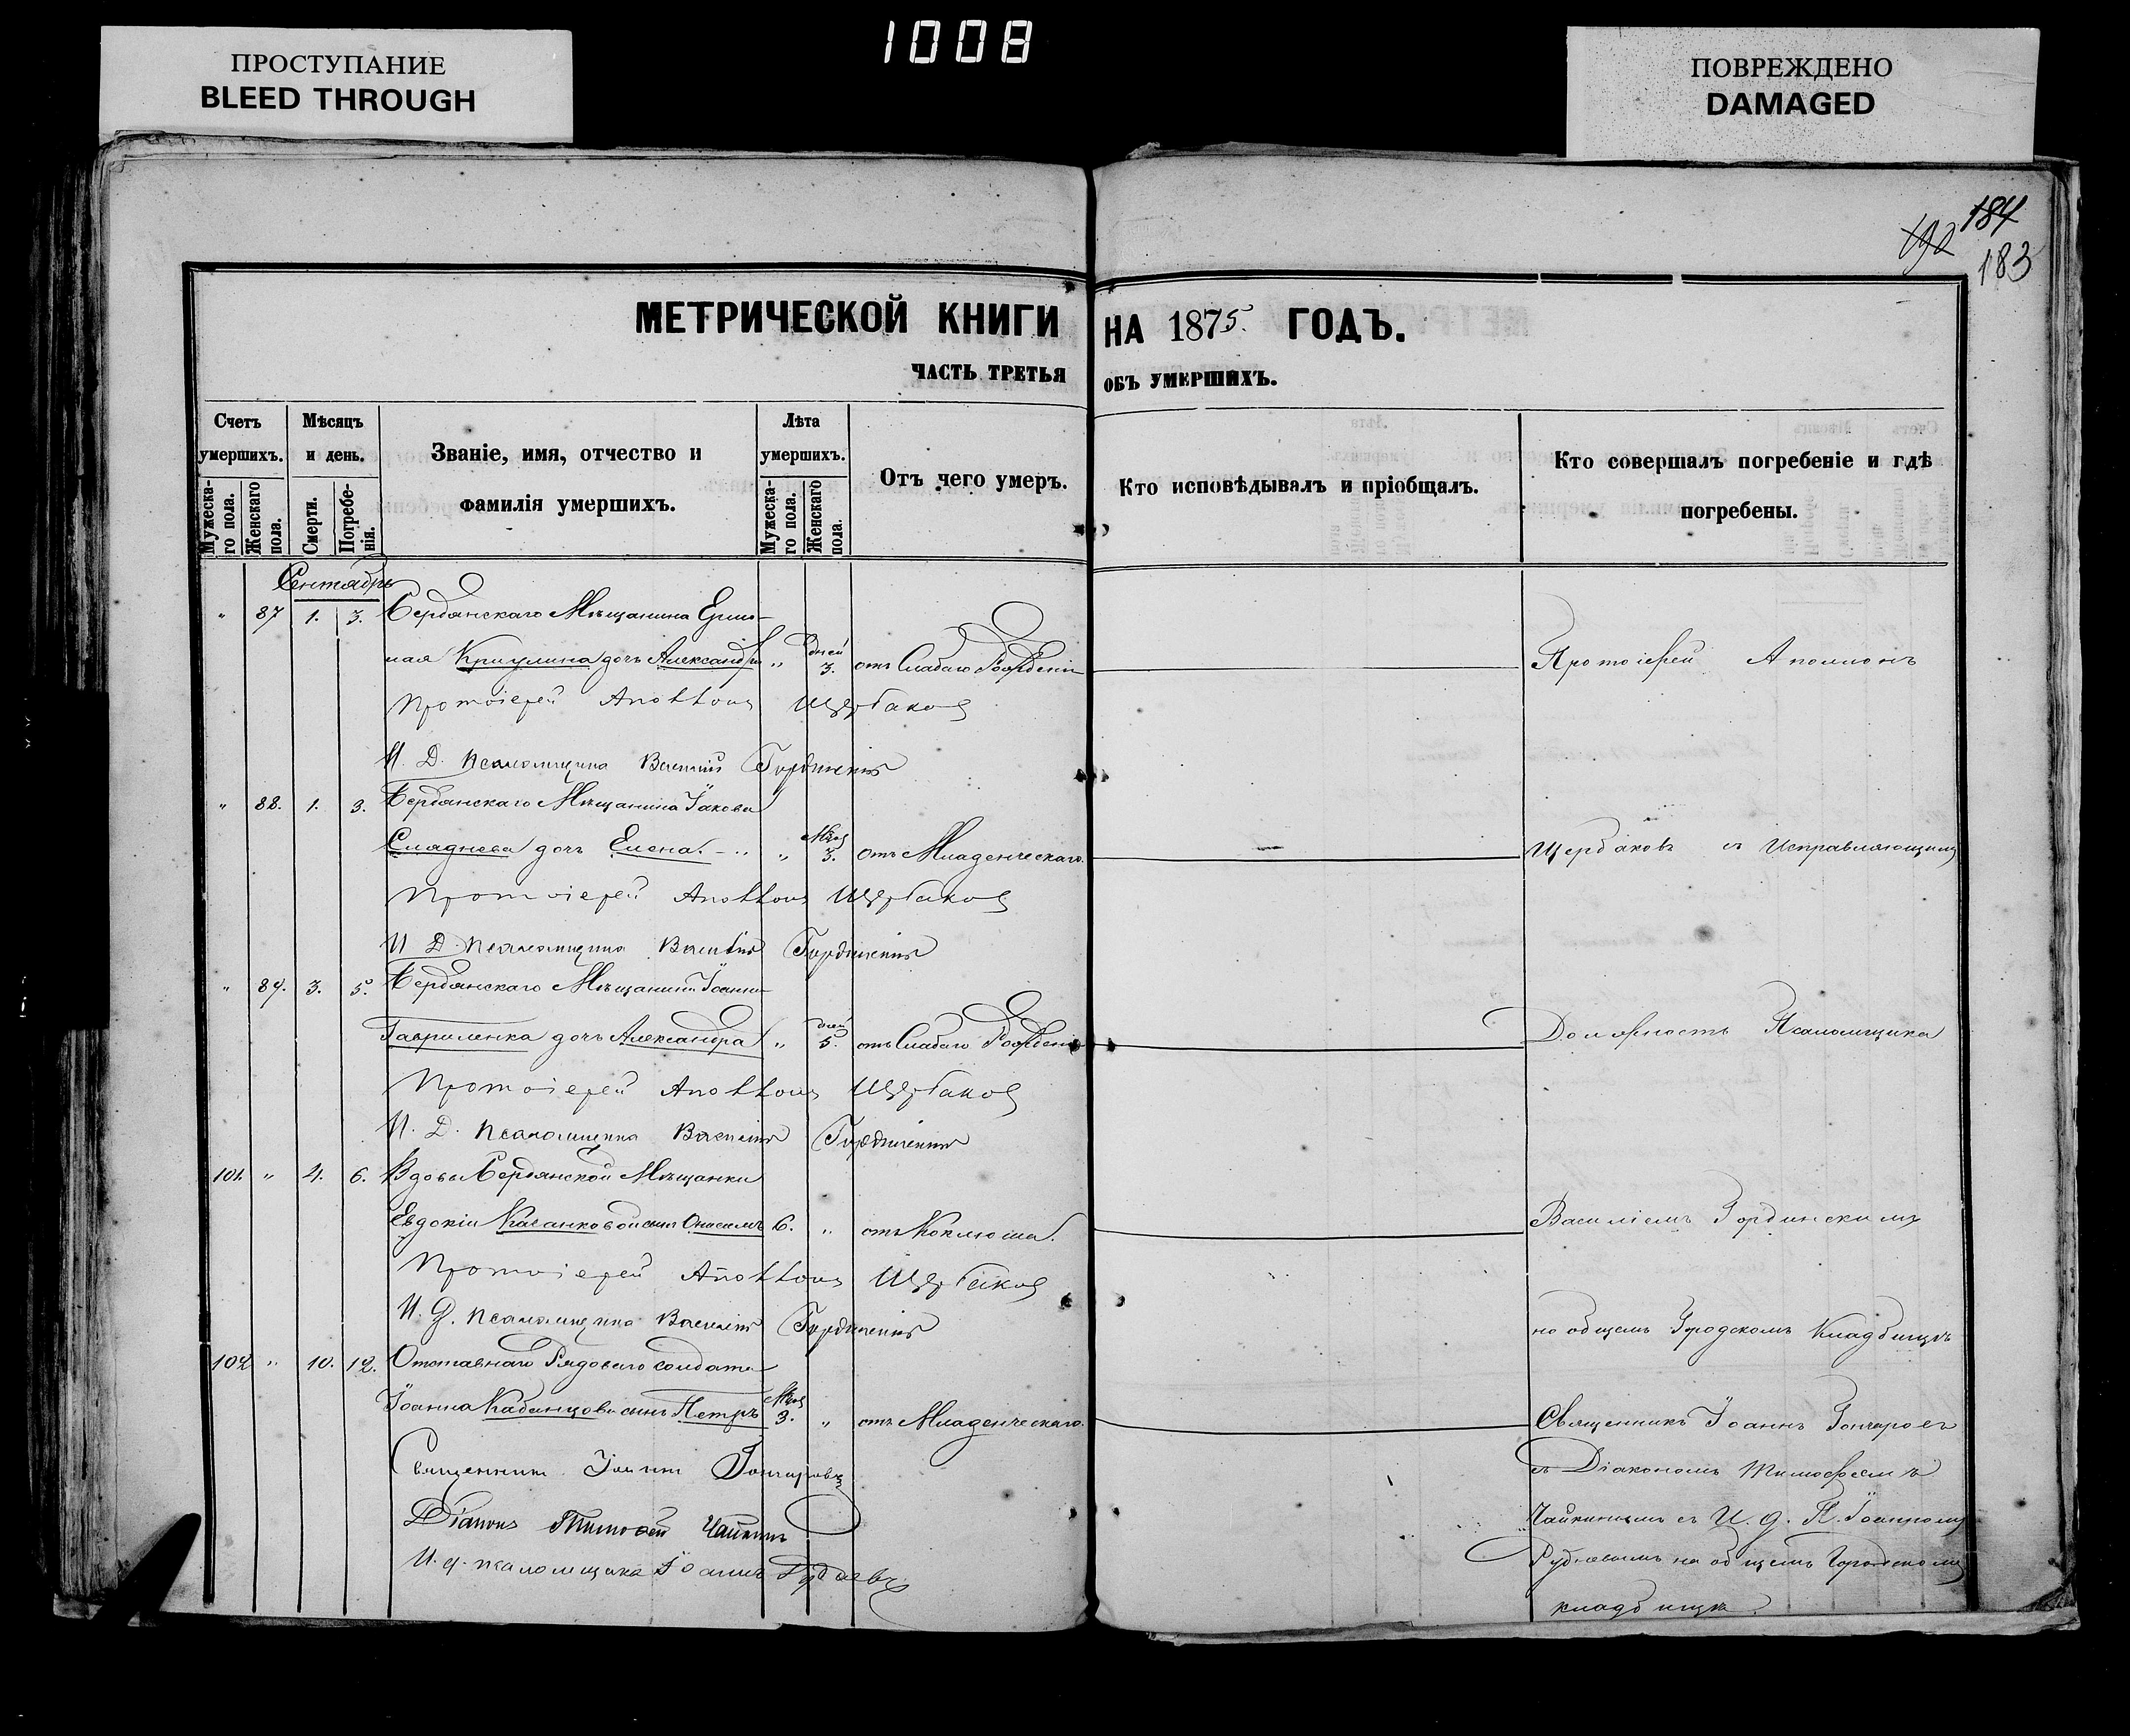 1008
ПРОСТУПАНИЕ
BLEED THROUGH
ПОВРЕЖДЕНО
DAMAGED
184
192
183
МЕТРИЧЕСКОЙ КНИГИ НА 1875. ГОДЪ.
ЧАСТЬ ТРЕТЬЯ ОБЪ УМЕРШИХЪ.
Счетъ умершихъ.
Мужеска-го пола.
Женскаго пола.
Мѣсяцъ и день.
Смерти.
Погребе-нія.
Званіе, имя, отчество и фамилія умершихъ.
Лѣта умершихъ.
Мужеска-го пола.
Женскаго пола.
Отъ чего умеръ.
Кто исповѣдывалъ и пріобщалъ.
Кто совершалъ погребеніе и гдѣ погребены.
Сентябрь
" 87 1. 3. Бердянскаго Мѣщанина
дочь Александра " дней 3. отъ Слабаго Рожденія Протоіерей Аполлонъ
Протоіерей Аполлонъ Щербаковъ
И. Д. Псаломщика Василій Гординскій
" 88. 1. 3. Бердянскаго Мѣщанина Іакова
Сляднева дочь Елена. " 3. отъ Младенческаго. Щербаковъ съ Исправляющимъ
Протоіерей Аполлонъ Щербаковъ
И Д. Псаломщика Василій Гординскій
" 89. 3. 5. Бердянскаго Мѣщанина Іоанна
Гавриленка дочь Александра " дней 5. отъ Слабаго Рожденія Должность Псаломщика
Протоіерей Аполлонъ Щербаковъ
И. Д. Псаломщика Василій Гординскій
101. " 4. 6. Вдовы Бердянской Мѣщанки
Евдокіи сынъ 6. " отъ Коклюша. Василіемъ Гординскимъ
Протоіерей Аполлонъ Щербаковъ
И. Д. Псаломщика Василій Гординскій
на общемъ Городскомъ Кладбищѣ
102 " 10. 12. Отставнаго Рядоваго солдата
Іоанна Кабанцова сынъ Петръ 3. " отъ Младенческаго. Священникъ Іоаннъ Гончаровъ
Священникъ Іоаннъ Гончаровъ
съ Діакономъ Тимофеемъ
Діаконъ Тимофей Чайкинъ
Чайкинымъ съ И. д. П. Іоанномъ
И. д. псаломщика Іоаннъ Рудневъ
Рудневымъ на общемъ Городскомъ
кладбищѣ.